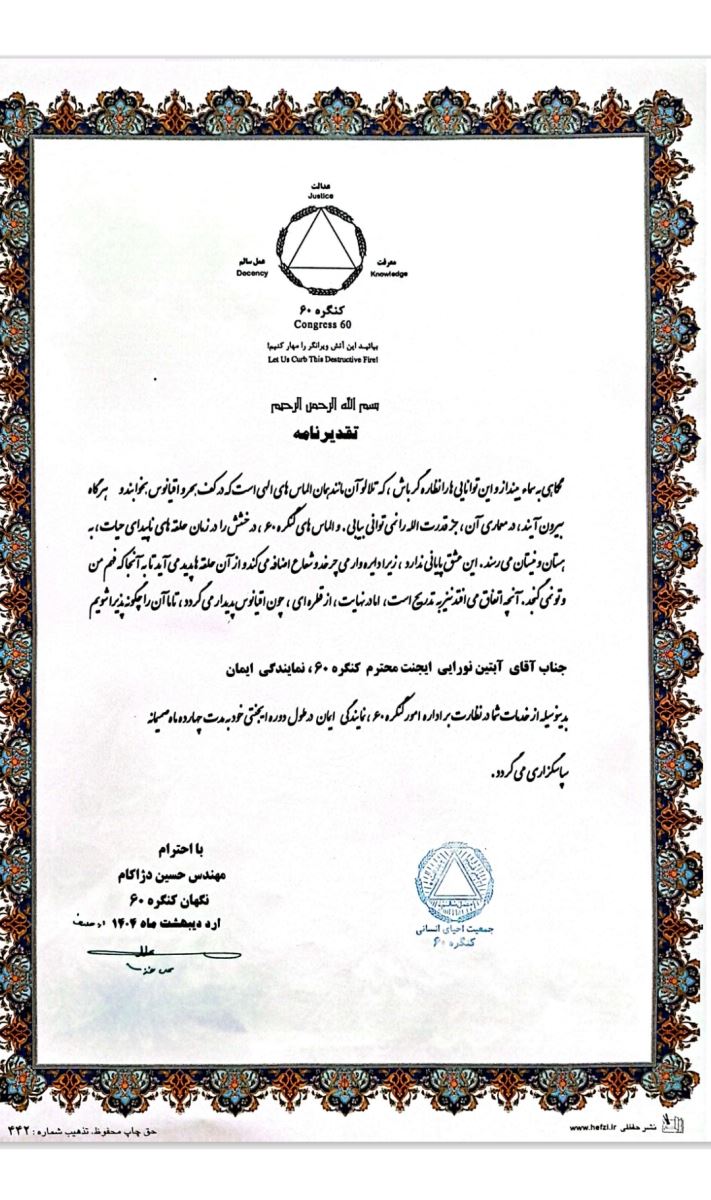 عدالت
Justice
معرفت
Knowledge
عمل سالم
Decency
کنگره ۶۰
Congress 60
بیائید این آتش ویرانگر را مهار کنیم!
Let Us Curb This Destructive Fire!
بسم الله الرحمن الرحیم
تقدیرنامه
نگاهی به سماء بینداز و این توانایی ها را نظاره گر باش، که تلالو آن مانند همان الماس های الهی است که در کف بحر و اقیانوس بخوابند و هرگاه
بیرون آیند، در معماری آن، جز قدرت الله را نمی توانی بیابی. و الماس های کنگره ۶۰، درخشش را در زمان حلقه های ناپیدای حیات، به
هستان و نیستان می رسند. این عشق پایانی ندارد، زیرا دایره وار می چرخد و شعاع اضافه می کند و از آن حلقه ها پدید می آید تا به آنجا که فهم من
و تو نمی گنجد. آنچه اتفاق می افتد نیز به تدریج است، اما در نهایت، از قطره ای، چون اقیانوس پدیدار می گردد، تا ما آن را چگونه پذیرا شویم
جناب آقای آبتین نورایی ایجنت محترم کنگره ۶۰، نمایندگی ایمان
بدینوسیله از خدمات شما در نظارت بر اداره امور کنگره ۶۰، نمایندگی ایمان در طول دوره ایجنتی خود به مدت چهارده ماه صمیمانه
سپاسگزاری می گردد.
با احترام
مهندس حسین دژاکام
نگهبان کنگره ۶۰
ارد دیبهشت ماه ۱۴۰۴
جمعیت احیای انسانی
کنگره ۶۰
نشر حفظی www.hefzi.ir
حق چاپ محفوظ. تذهیب شماره : ۴۴۲